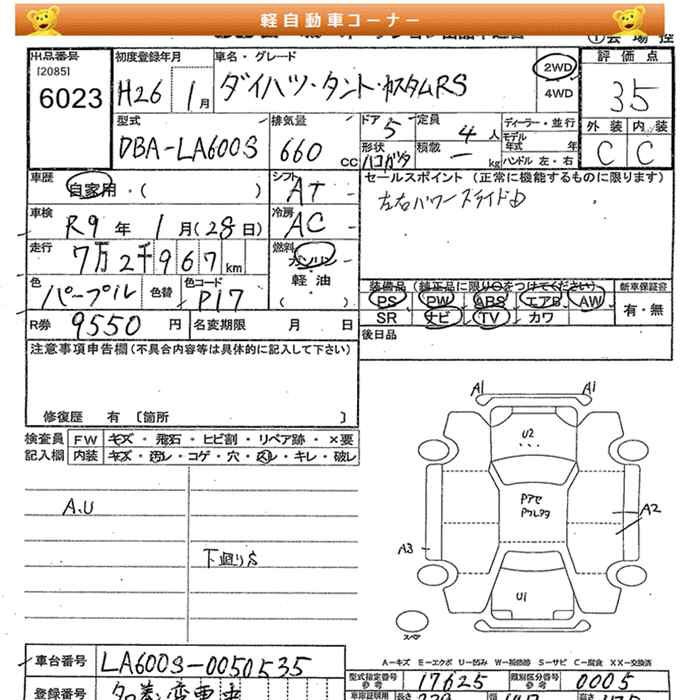 軽自動車コーナー
出品番号
[2085]
6023
初度登録年月
H26 1月
車名・グレード
ダイハツ・タント・カスタムRS
2WD
4WD
評価点
3.5
外装 内装
C C
型式
DBA-LA600S
排気量
660 cc
ドア
5
定員
4人
形状
積載
— kg
ディーラー・並行
モデル
年式 年
ハンドル 左・右
車歴
自家用・( )
シフト
AT
セールスポイント (正常に機能するものに限ります)
左右パワースライドD
車検
R9年 1月(28日)
冷房
AC
走行
7万2千967km
燃料
ガソリン
軽油
( )
色
パープル
色替
色コード
P17
装備品 (純正品に限り○をつけてください)
PS PW ABS エアB AW
SR ナビ TV カワ
新車保証書
有・無
R券 9550円
名変期限 月 日
後日品
注意事項申告欄 (不具合内容等は具体的に記入して下さい)
修復歴 有 〔箇所 〕
検査員
記入欄
FW キズ・飛石・ヒビ割・リペア跡・×要
内装 キズ・汚レ・コゲ・穴・スレ・キレ・破レ
A.U
下廻りS
A1 A1
U2
A2
A3
U1
スペア
A-キズ E-エクボ U-凹み W-補修跡 S-サビ C-腐食 XX-交換済
車台番号 LA600S-0050535
型式指定番号
参考
17625
類別区分番号
参考
0005
登録番号